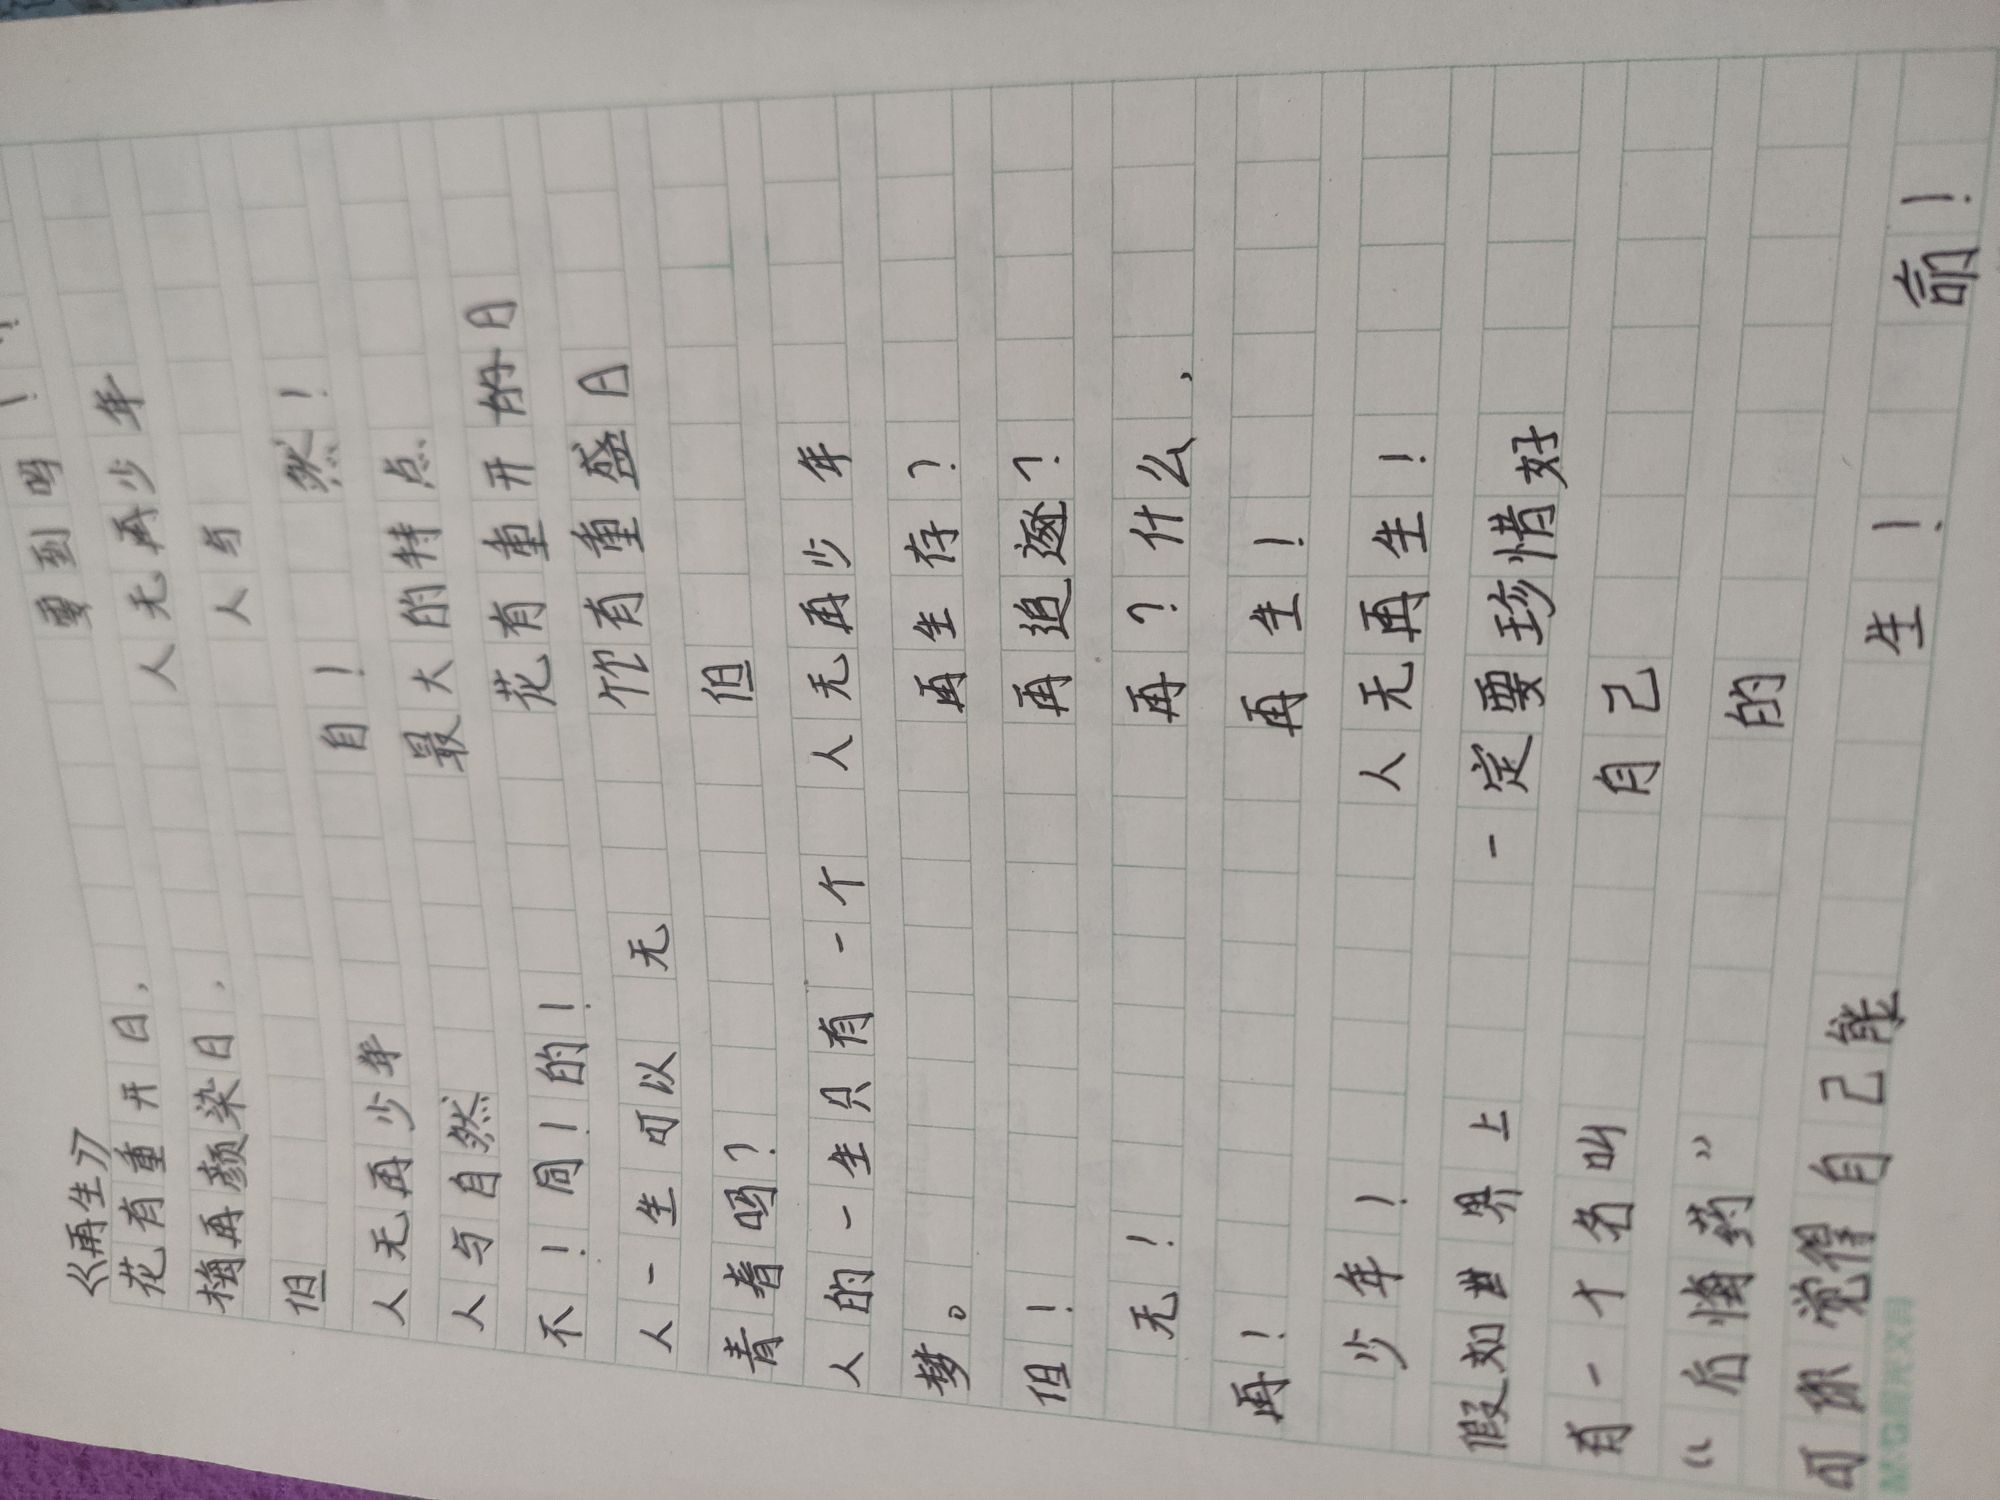 《再生》
花有重开日，
梅再颜染日，
但
人无再少年
人与自然
不！同！的！
人一生可以无
青春吗？
人的一生只有一个
梦。
但！
无！
再！
少年！
假如世界上
有一个名叫
“后悔药”
可你觉得自己能
要到吗！！
人无再少年
人与
自！然！
最大的特点
花有重开日
竹有重盛日
但
人无再少年
再生存？
再追逐？
再？什么，
再生！
人无再生！
一定要珍惜好
自己
的
生！
命！